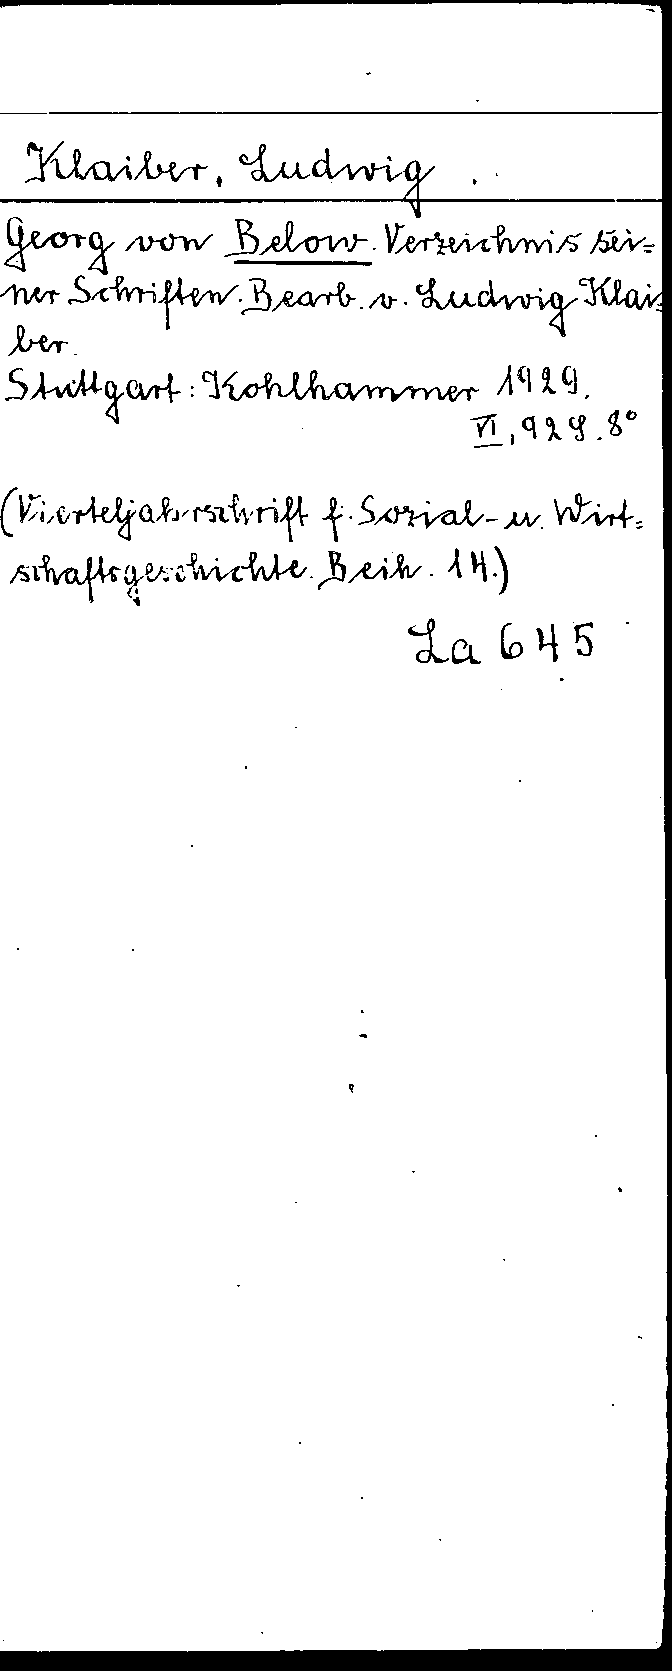 Klaiber, Ludwig.
Georg von Below. Verzeichnis sei=
ner Schriften. Bearb. v. Ludwig Klai=
ber.
Stuttgart: Kohlhammer 1929.
VI, 92 S. 8°
(Vierteljahrschrift f. Sozial- u. Wirt=
schaftsgeschichte. Beih. 14.)
La 645